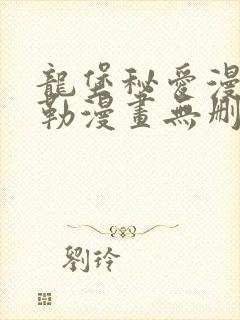 龍堡秘愛漫
勒漫畫無刪
劉玲